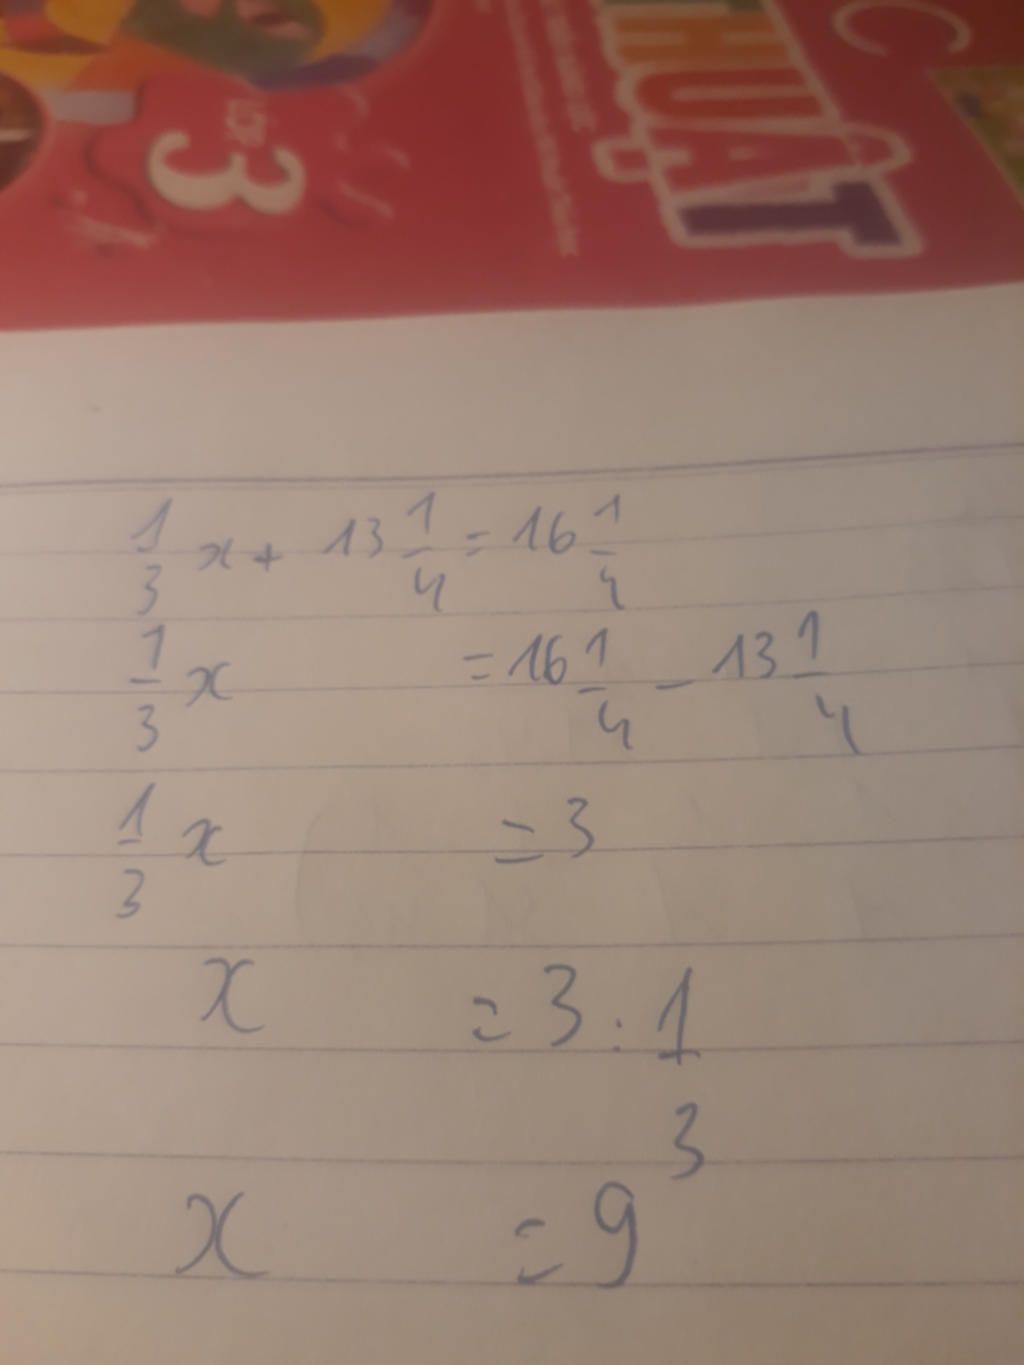 HUẬT
LỚP
3
C
1/3 x + 13 1/4 = 16 1/4
1/3 x = 16 1/4 - 13 1/4
1/3 x = 3
x = 3 : 1/3
x = 9